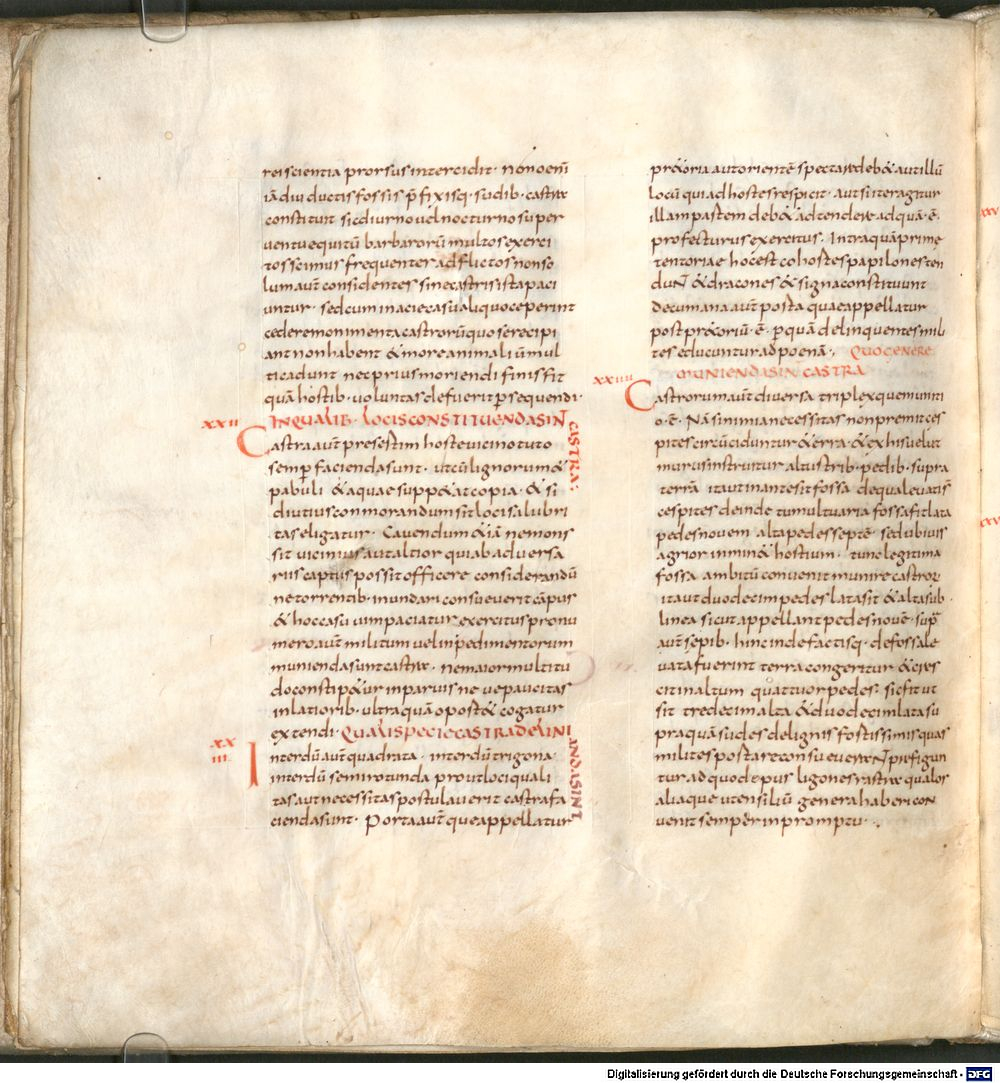 rei scientia prorsus intercidit · non oēm
iā diu ductis fossis p̄fixisq· sudib· castra
constituit sic diurno vel nocturno super
ventu equitū barbarorū multos exerci
tos scimus frequenter adflictos non so
lum aut̄ considentes sine castris ista paci
untur · sed cum in acie casu aliquo ceperint
cedere monimenta castrorū quo se recipi
ant non habent & more animaliū mul
ti cadunt nec prius moriendi finis fit
quā hostib· voluntas defuerit p̱sequendi ·
XXII IN QUALIB· LOCIS CONSTITUENDA SINT CASTRA:
Castra aut̄ presestim hoste vicino tuto
semp̱ facienda sunt · ut cū lignorum &
pabuli & aquae supp&at copia · & si
diutius conmorandum sit loci salubri
tas eligatur · Cavendum & iā ne mons
sit vicinius aut altior qui ab adversa
riis captus possit officere considerandū
ne torrentib· inundari consueverit cāpus
& hoc casu vim paciatur exercitus pro nu
mero aut̄ militum vel inpedimentorum
munienda sunt castra · ne maior multitu
do constip&ur in parvis ne ve paucitas
in latiorib· ultra quā oport& cogatur
extendi · QUALI SPECIE CASTRA DELINIANDA SINT
XXIII Interdū aut̄ quadrata · interdū trigona ·
interdū semirotunda prout loci quali
tas aut necessitas postulaverit castra fa
cienda sunt · Porta aut̄ que appellatur
pr&oria aut orientē spectare deb& aut illū
locū qui ad hostes respicit · aut si iter agitur
illam pastem deb& adtendere ad quā · ē ·
profecturus exercitus · Intra quā prime
tentoriae hoc est cohostes papilones ten
dunt & dracones & signa constituunt
decumana aut̄ posta quae appellatur
post pr&oriū · ē · p̱ quā delinquentes mili
tes educuntur ad poenā · QUO GENERE
MUNIENDA SINT CASTRA
XXIIII Castrorum aut̄ diversa triplexque muniti
o · ē · Nā si nimia necessitas non premit ces
pites circūciduntur & erra · & ex his uelut
murus instruitur altus trib· pedib· supra
terrā ita ut in ante sit fossa de qua levatis̄
cespites deinde tumultuaria fossa fit lata
pedes novem alta pedes septē · sed ubi vis
agrior inmin& hostium · tunc legitima
fossa ambitū convenit munire castrorꝝ
ita ut duodecim pedes lata sit & alta sub ·
linea sicut appellant pedes novē · supra
aut̄ sepib· hinc inde factisq· de fossa le
vata fuerint terra congeritur & cres
cit in altum quattuor pedes · sic fit ut
sit tredecim alta & duodecim lata su
pra quā sudes de lignis fostissimis quas
milites postare consueverunt prefigun
tur ad quod epus ligones rastra qualos
aliaque utensiliū genera haberi con
venit semper in promptu · ,
Digitalisierung gefördert durch die Deutsche Forschungsgemeinschaft - DFG